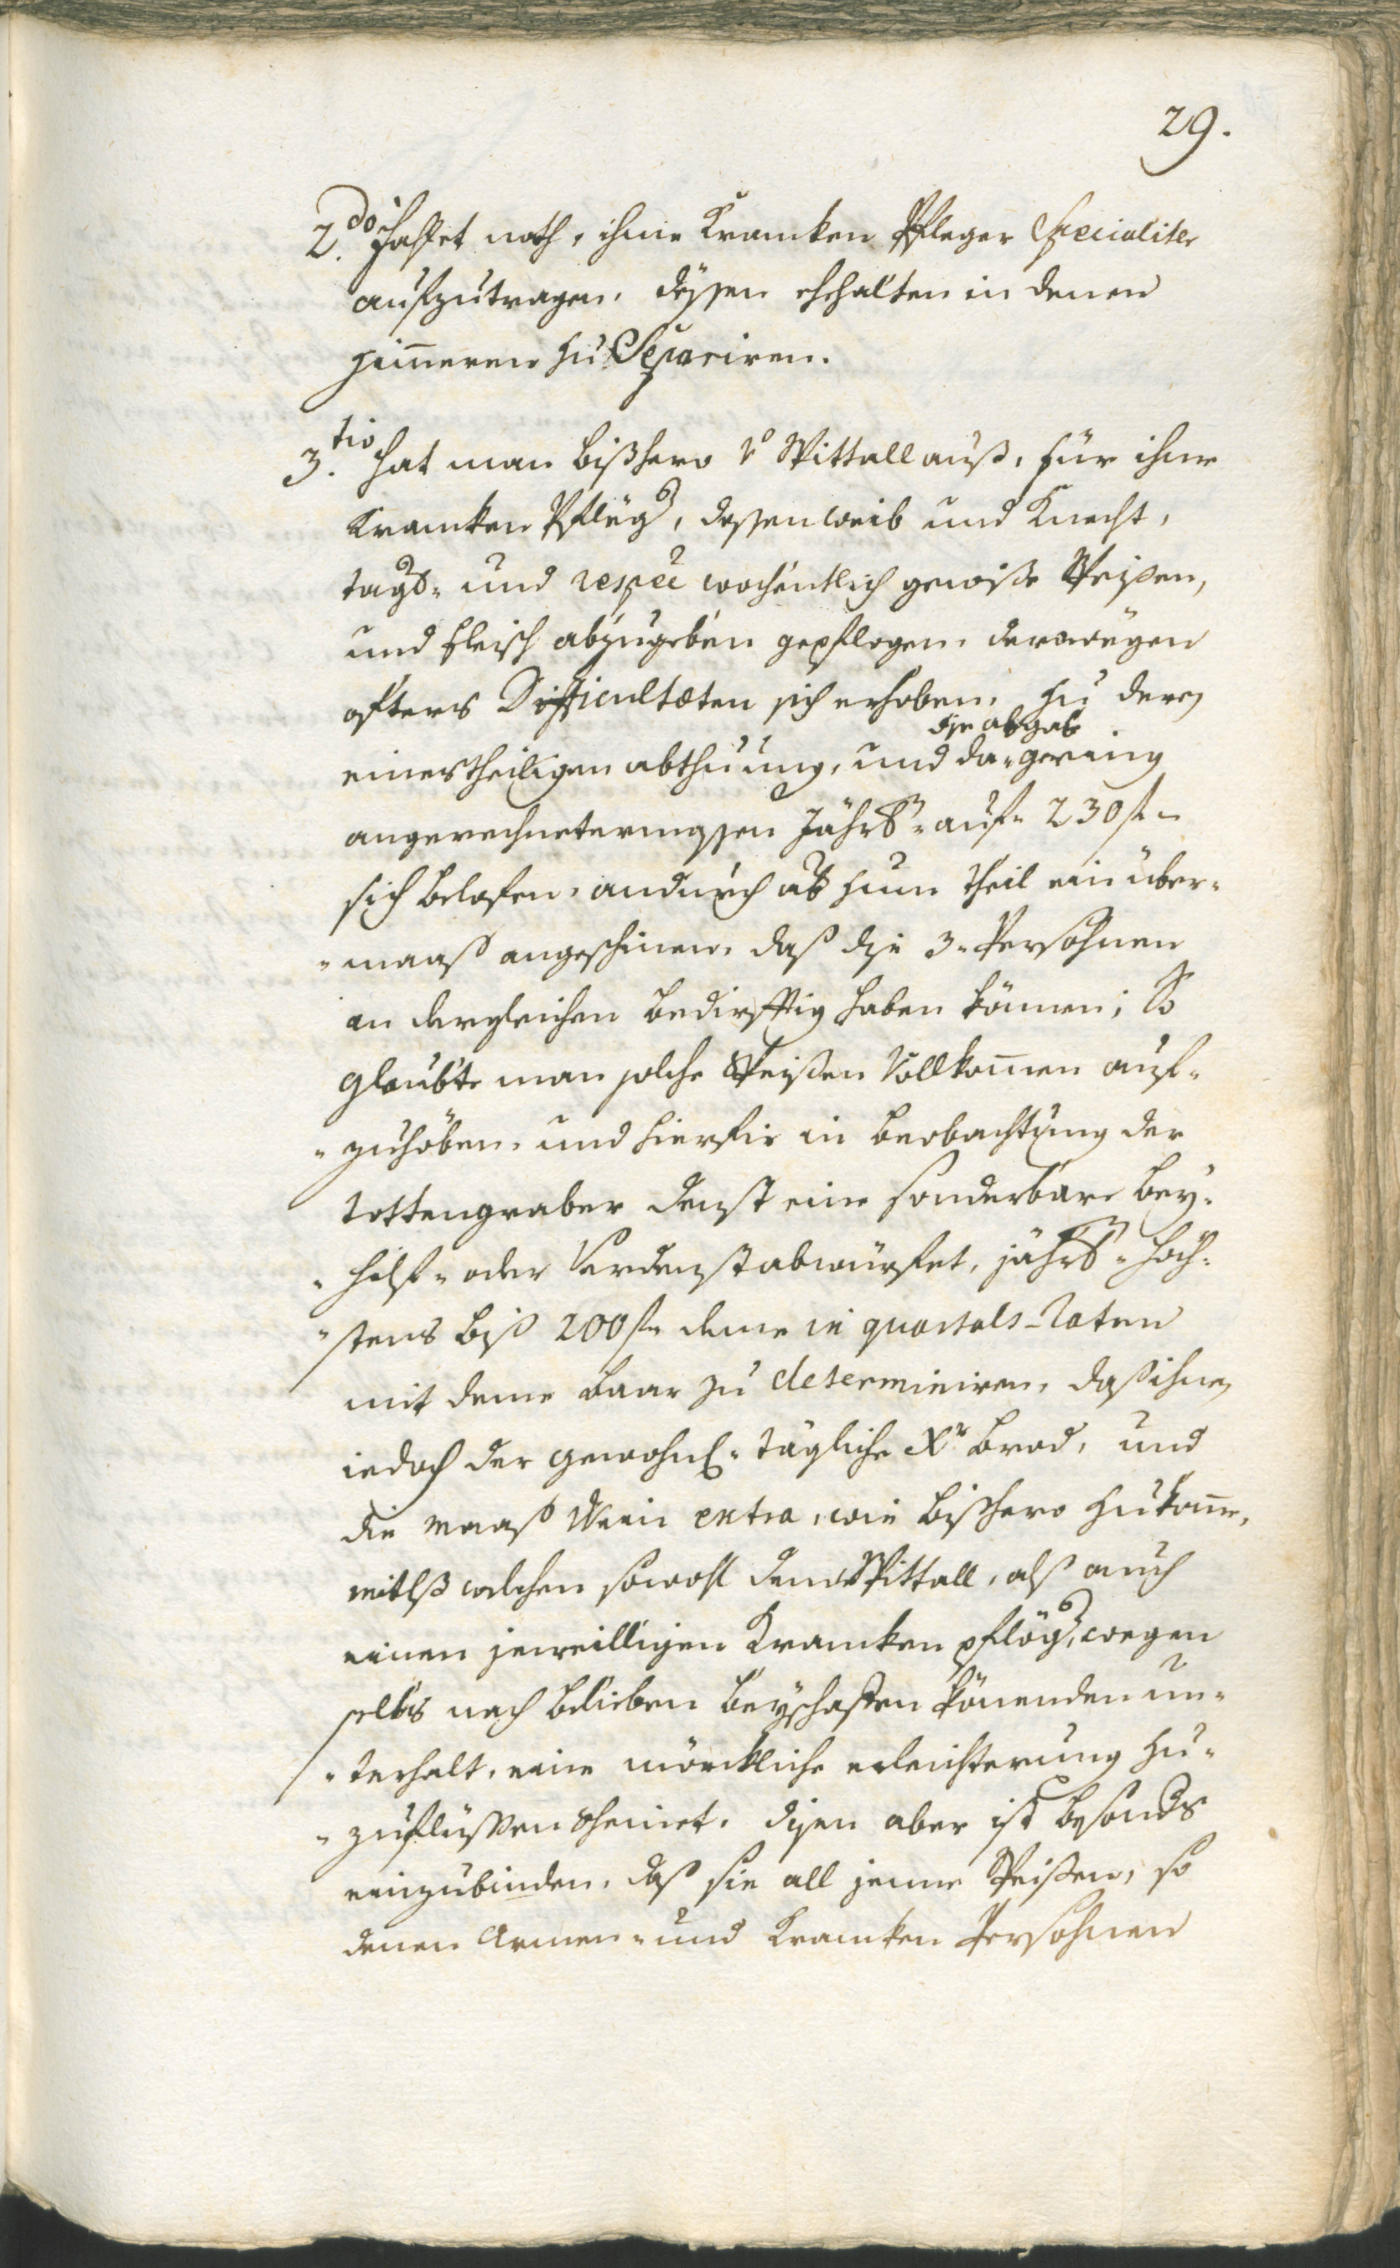 29.
2.do Hafftet noth, ihme Krancken Pfleger Specialiter
aufzutragen, dessen ehehalten in denen
Zimmeren zu Separiren.
3.tio Hat man bißhero vo Spittall auß, für ihne
Krancken Pfleger, dessen weib und Knecht,
tags- und respee wochentlich gewisse Speisen,
und fleisch abzugeben gepflogen, derowegen
offters Difficultæten sich erhoben, Zu deren
die abgab
einestheiligen abthuung, und da- gering
angerechnetermassen Jährl: auf 230 f
sich beloffen, andurch auch zum theil ein über-
-maaß angeschinen, daß die 3- Persohnen
an dergleichen bedirfftig haben können; So
glaubte man solche Speisen Vollkommen auf-
-zuhöben, und hierfir in beobachtung der
tottengraber dienst eine sonderbare bey-
-hilf- oder Verdienst abwürfet, jährl: höch-
-stens biß 200 f deme in quartals-Raten
mit deme baar zu determiniren, daß ihnen
iedoch der gewohnl: tägliche Xr brod, und
die maaß Wein extra, wie bißhero zukomme,
mitlß welchen sowohl dem Spittall, alß auch
einen jeweilligen Krancken pfläger, wegen
selbs nach belieben beyschaffen könenden un-
-terhalt, eine mörckliche erleichterung zu-
-zuflüssen scheinet. disem aber ist besonders
einzubinden, daß sie all jenne Speisen, so
denen Armen- und krancken Persohnen